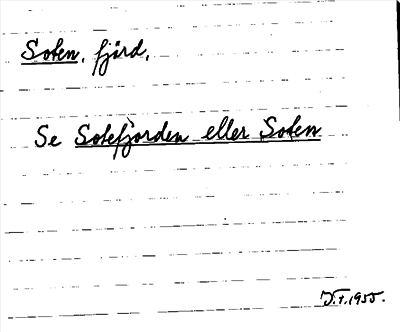 Soten, fjärd.
Se Sotefjorden eller Soten
1955.